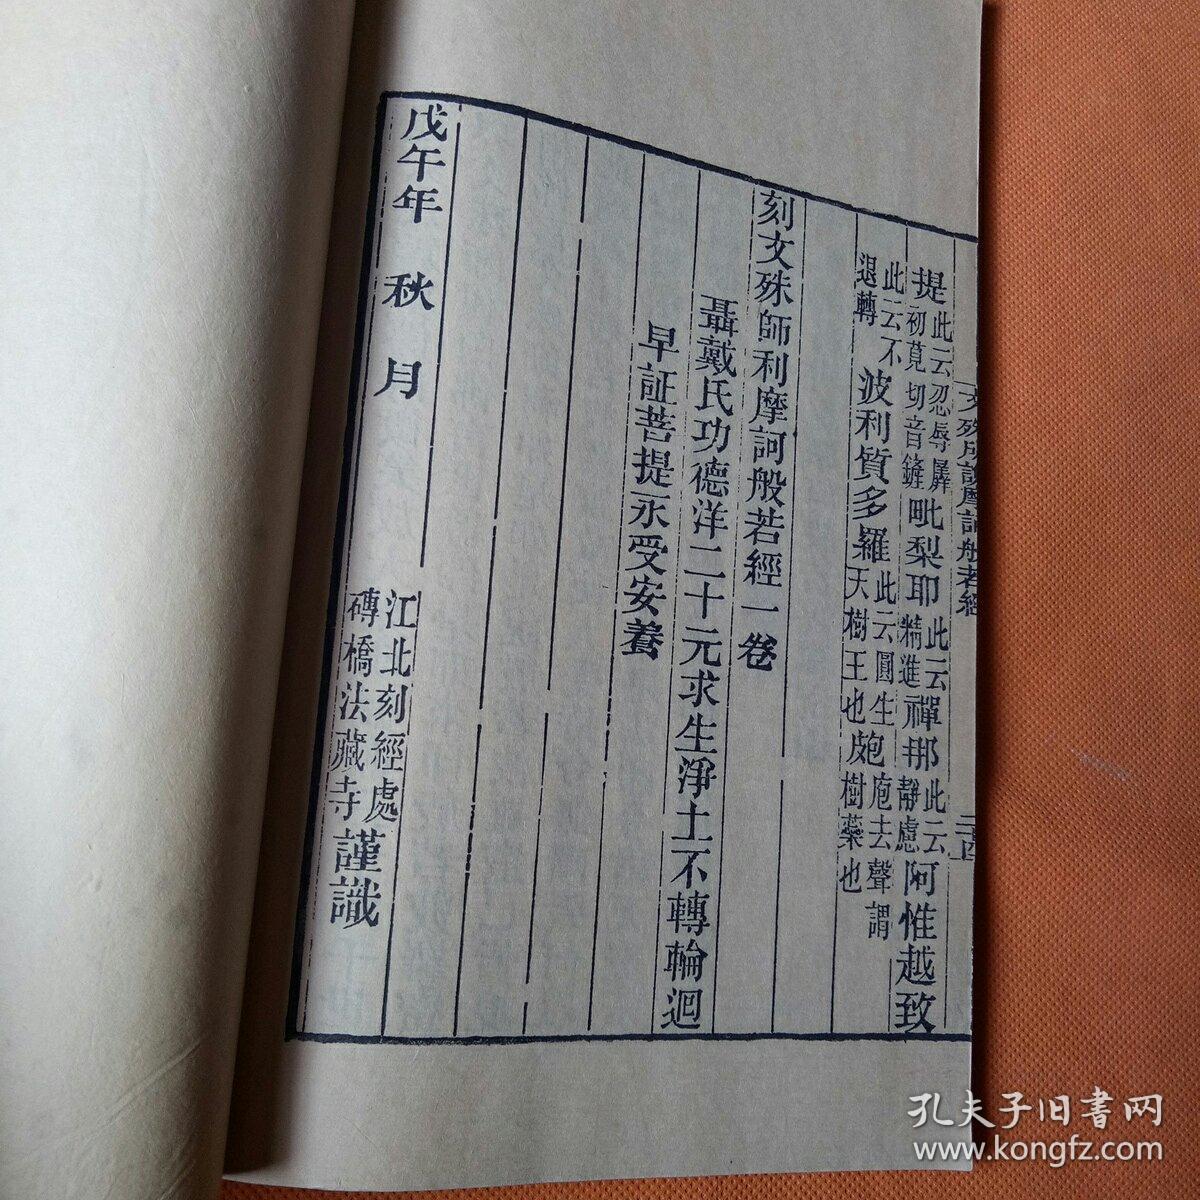 文殊所說摩訶般若經 二十四
提此云忍辱羼初莧切音鏟毗梨耶此云精進禪那此云靜慮阿惟越致
此云不退轉波利質多羅此云圓生天樹王也皰庖去聲謂皰樹藥也
刻文殊師利摩訶般若經一卷
聶戴氏功德洋二十元求生淨土不轉輪迴
早証菩提永受安養
戊午年 秋 月
江北刻經處
磚橋法藏寺謹識
孔夫子旧書网
www.kongfz.com